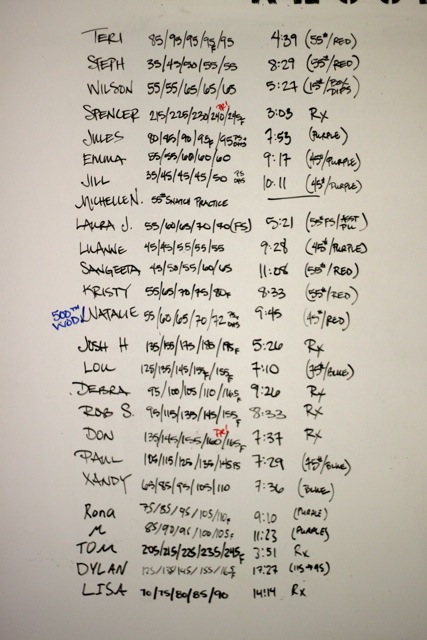 TERI 85/95/95/95F/95 4:39 (55#/RED)
STEPH 35/45/50/55/55 8:29 (55#/RED)
WILSON 55/55/65/65/65 5:27 (15# BOX DIPS)
PR!
SPENCER 215/225/230/240/245F 3:03 Rx
JULES 80/85/90/95F/95 7:53 (PURPLE)
EMMA 55/55/60/60/60 9:17 (45#/PURPLE)
JILL 35/45/45/45/50 10:11 (45#/PURPLE)
MICHELLE N. 55# SNATCH PRACTICE
LAURA J. 55/60/65/70/70(FS) 5:21
LILIANNE 45/45/55/55/55 9:28 (45#/PURPLE)
SANGEETA 45/50/55/60/65 11:08 (55#/RED)
KRISTY 55/65/70/75/80F 8:33 (55#/RED)
500TH WOD! NATALIE 55/60/65/70/72 9:45 (45#/RED)
JOSH H 135/155/175/185/195F 5:26 Rx
LOU 125/135/145/155F/155F 7:10 (75#/BLUE)
DEBRA 95/100/105/110/115F 9:26 Rx
ROB S. 95/115/135/145/155F 8:33 Rx
PR!
DON 135/145/155/160/165F 7:37 Rx
PAUL 7:29 (75#/BLUE)
XANDY 65/85/95/105/110 7:36 (BLUE)
Rona 75/85/95/105/110F 9:10 (PURPLE)
M 85/90/95/100/105F 11:23 (PURPLE)
TOM 205/215/225/235/245F 3:51 Rx
DYLAN 125/135/145/155/165F 17:27 (115→95)
LISA 70/75/80/85/90 14:14 Rx